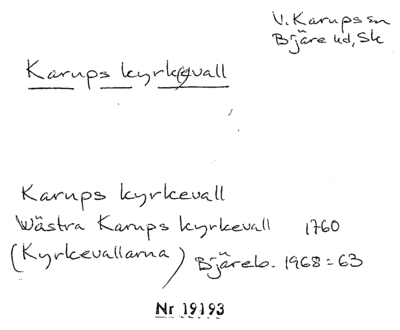 V. Karups sn
Bjäre hd, Sk
Karups kyrkevall
Karups kyrkevall
Wästra Karups kyrkevall 1760
(Kyrkevallarna) Bjäreb. 1968 = 63
Nr 19193